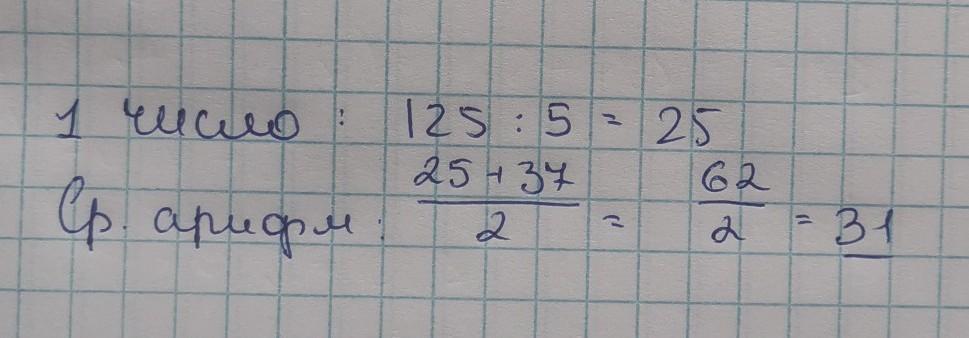 1 число : 125 : 5 = 25
Ср. арифм: (25+37)/2 = 62/2 = 31